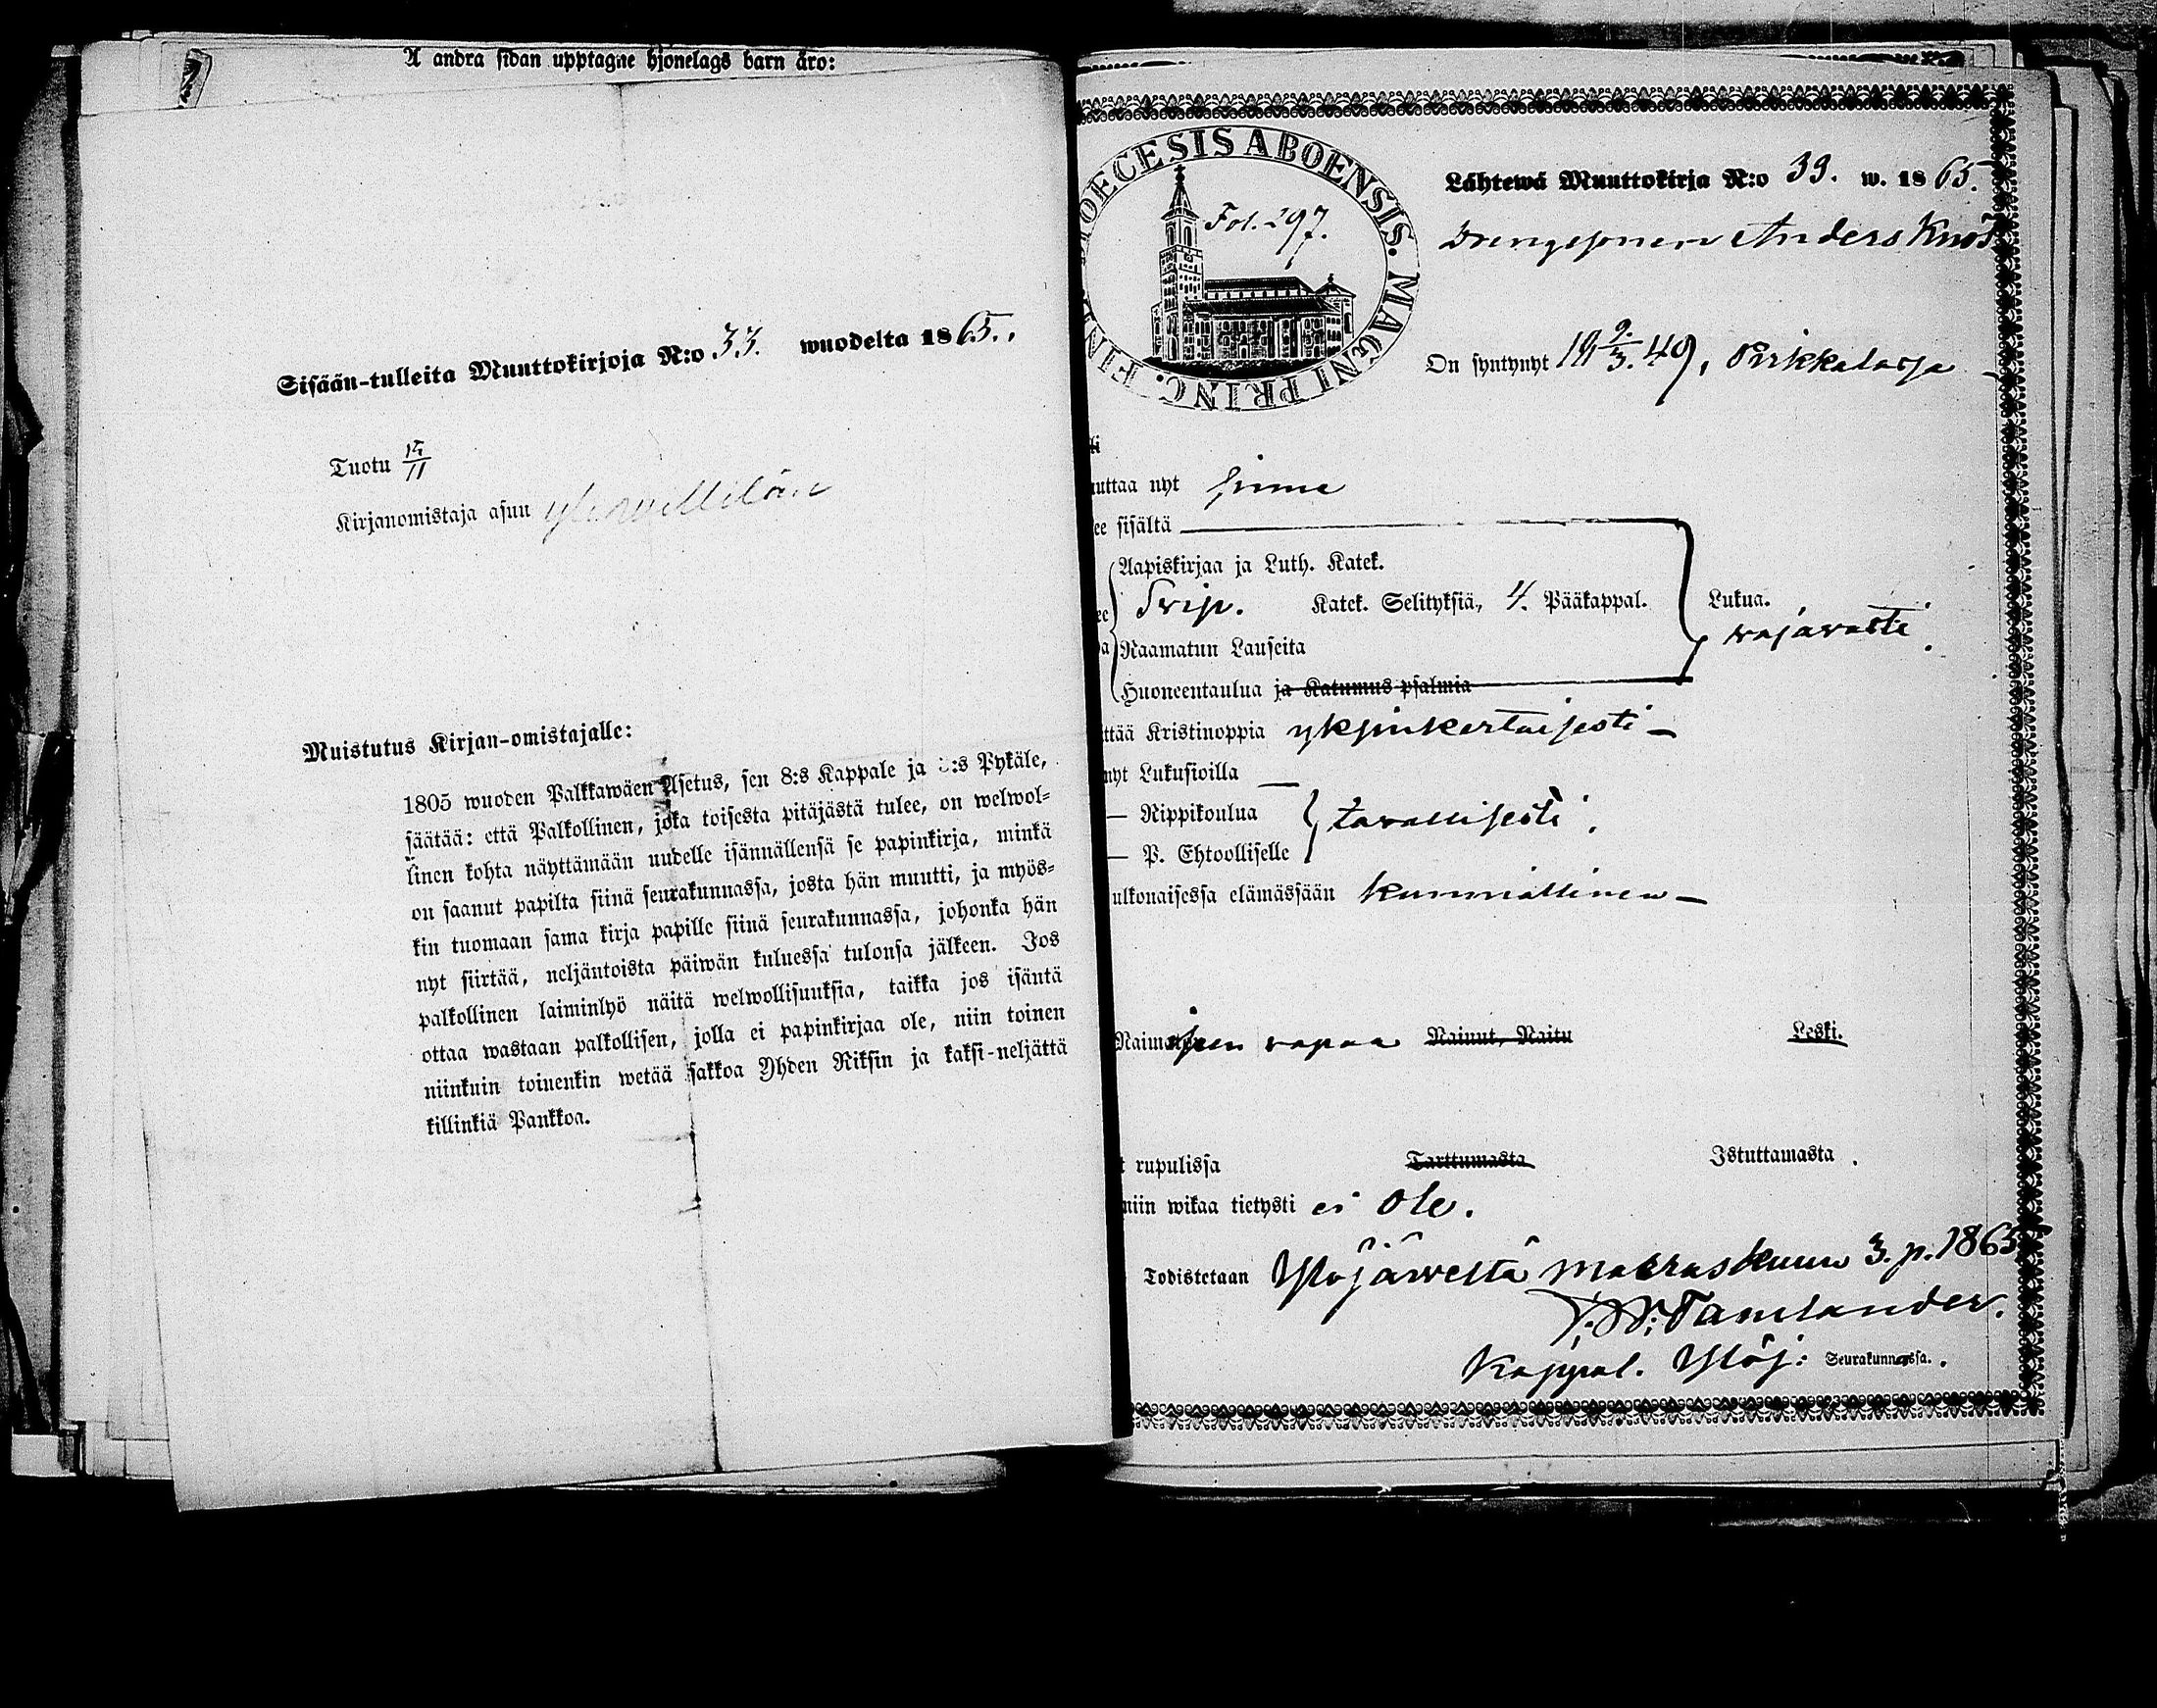 A andra sidan upptagne hjonelags barn äro:
Sisään-tulleita Muuttokirjoja N:o 33. wuodelta 1865.
Tuotu 15/11
Kirjanomistaja asuu
Muistutus Kirjan-omistajalle:
1805 wuoden Palkkawäen Asetus, sen 8:s Kappale ja :s Pykäle,
säätää: että Palkollinen, joka toisesta pitäjästä tulee, on welwol-
linen kohta näyttämään uudelle isännällensä se papinkirja, minkä
on saanut papilta siinä seurakunnassa, josta hän muutti, ja myös-
kin tuomaan sama kirja papille siinä seurakunnassa, johonka hän
nyt siirtää, neljäntoista päiwän kuluessa tulonsa jälkeen. Jos
palkollinen laiminlyö näitä welwollisuuksia, taikka jos isäntä
ottaa wastaan palkollisen, jolla ei papinkirjaa ole, niin toinen
niinkuin toinenkin wetää sakkoa Yhden Riksin ja kaksi-neljättä
killinkiä Pankkoa.
DIOECESIS ABOENSIS. MAGNI PRINC. FINL.
Fol. 297.
Lähtewä Muuttokirja N:o 39. w. 1865.
Drengsonen Anders
On syntynyt 18 9/3. 49, Pirkkalasja
uttaa nyt sinne
ee sisältä
Aapiskirjaa ja Luth. Katek.
Svip. Katek. Selityksiä, 4. Pääkappal.
Raamatun Lauseita
Huoneentaulua ja Katumus-psalmia
Lukua.
wajawasti.
ttää Kristinoppia yksinkertaisesti —
nyt Lukusioilla —
— Rippikoulua
— P. Ehtoolliselle
tavallisesti.
ulkonaisessa elämässään kunniallinen —
Naimisen vapaa Nainut, Naitu Leski.
t rupulissa Tarttumasta Istuttamasta.
niin wikaa tietysti ei ole.
Todistetaan Ylöjärveltä marraskuun 3. p. 1865
Tamlander.
Kappal. Ylöj: Seurakunnassa.